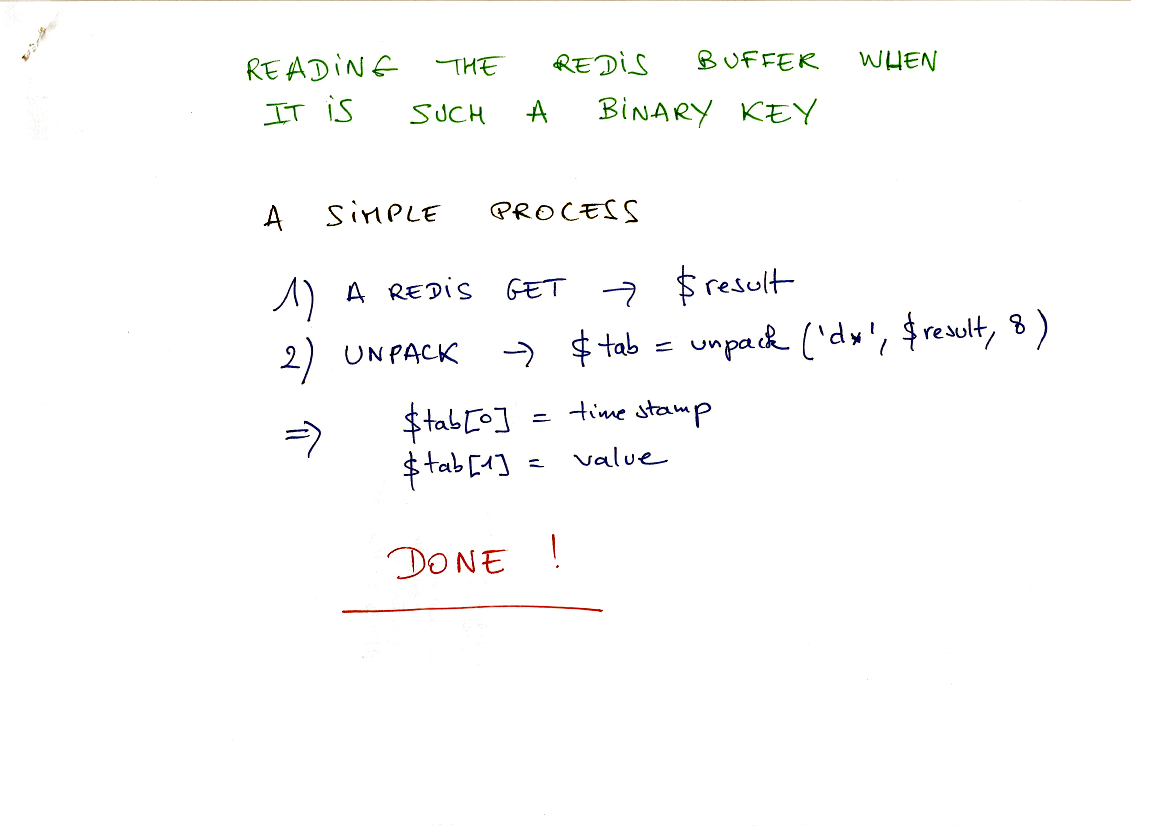 READING THE REDIS BUFFER WHEN
IT IS SUCH A BINARY KEY
A SIMPLE PROCESS
1) A REDIS GET → $result
2) UNPACK → $tab = unpack ('d*', $result, 8)
⇒ $tab[0] = timestamp
$tab[1] = value
DONE !